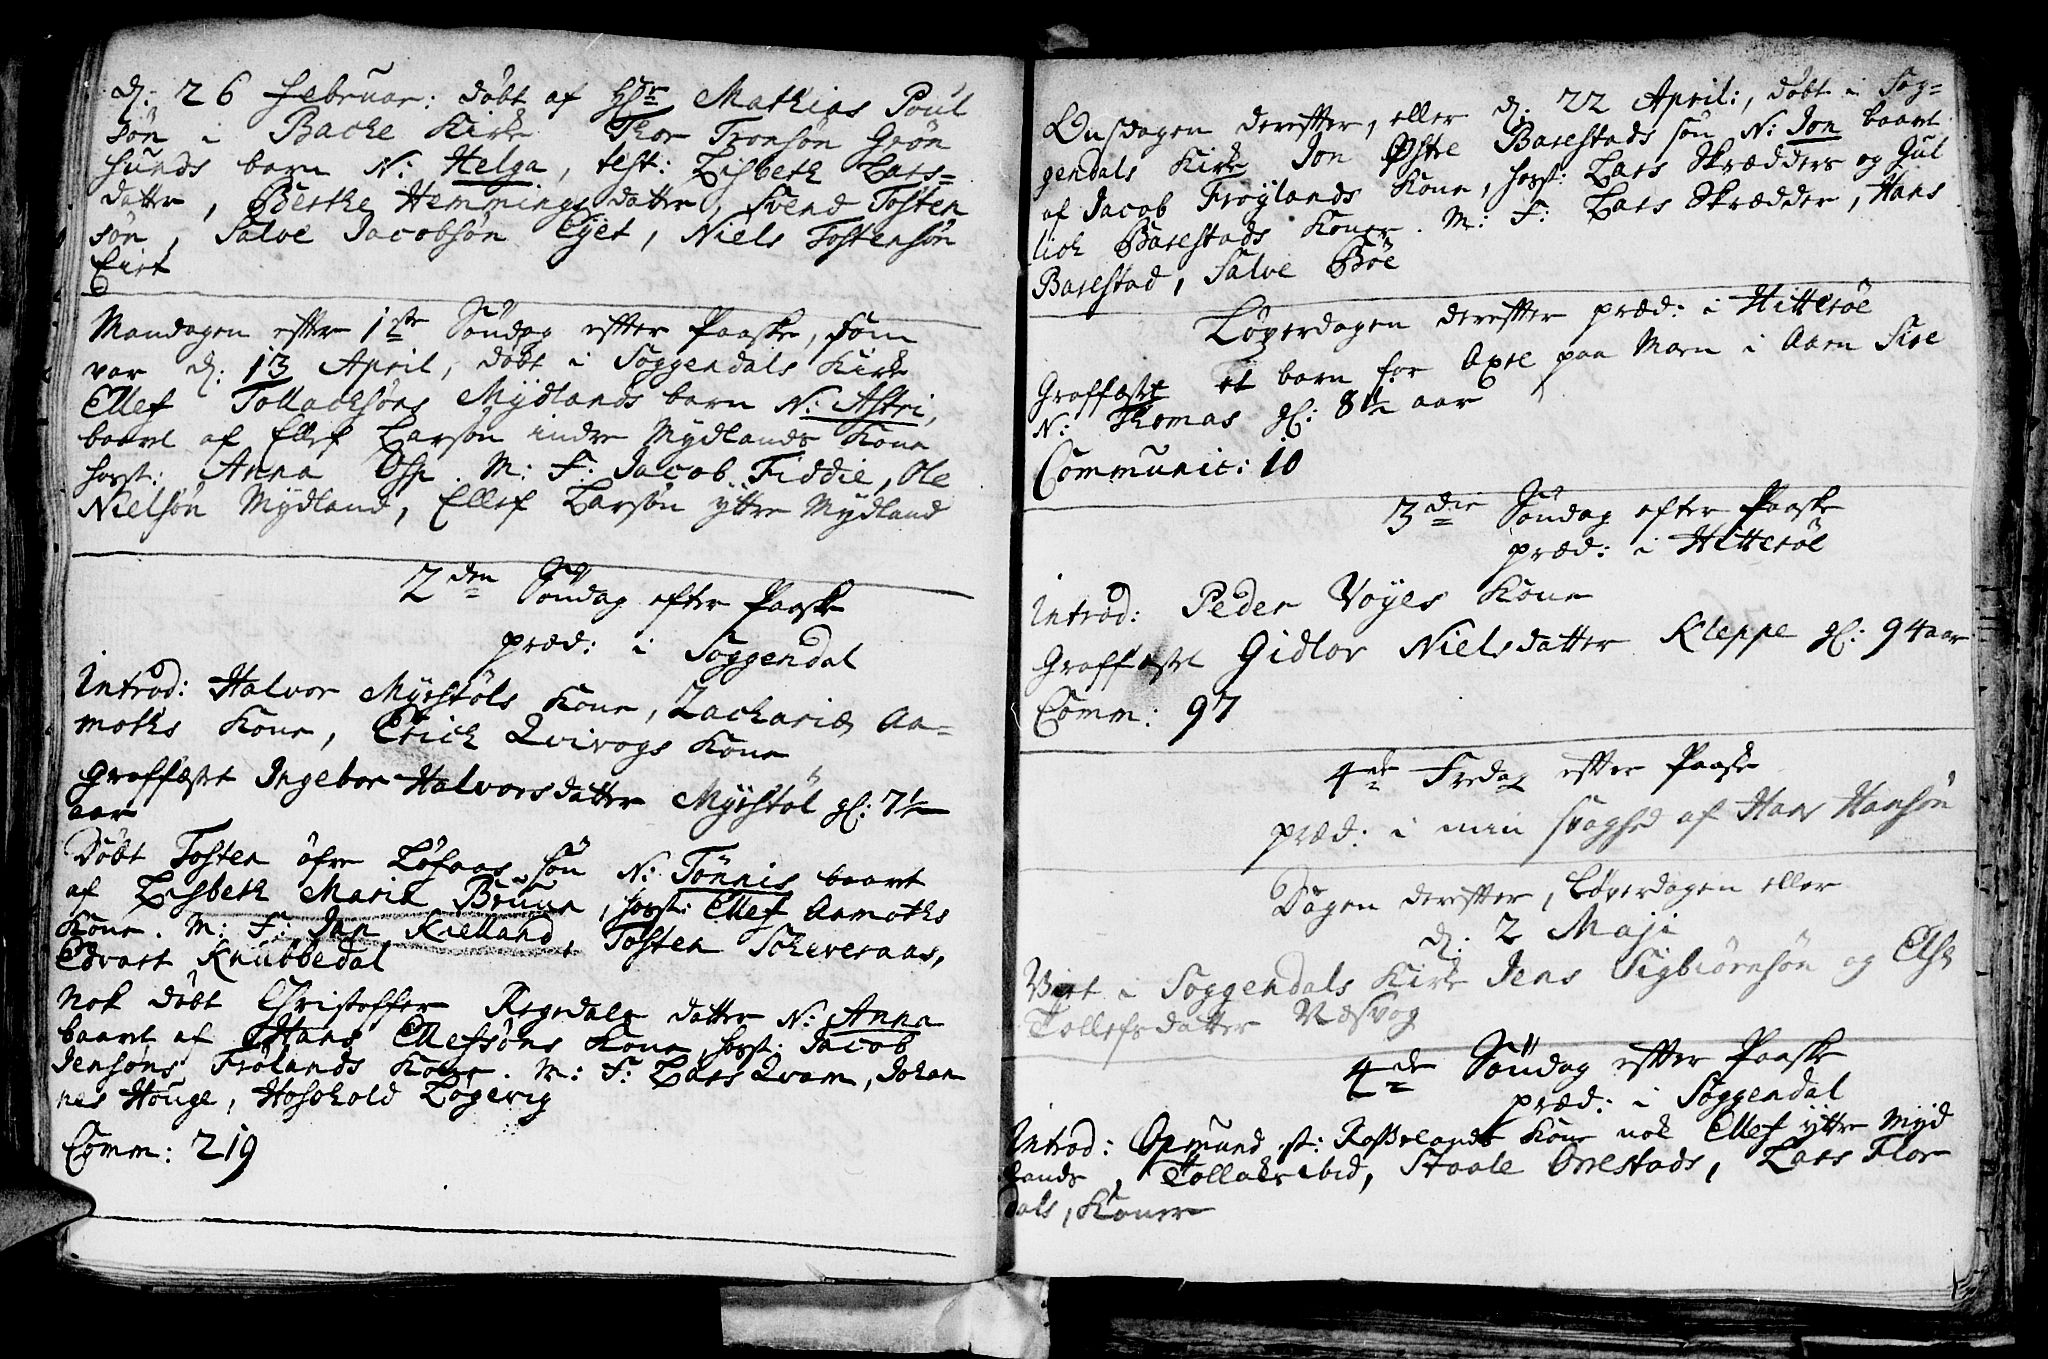 d: 26 Februar: döbt af Hr Mathias Poul
sön i Backe Kirke Thor Tronsön Grön
sunds barn N: Helga, test: Lisbeth Lars=
datter, Berthe Hemmings datter, Svend Tosten
sön, Salve Jacobsön Eget, Niels Tostensön
Eiet
Mandagen efter 1ste Söndag efter Paaske, som
var d: 13 April, döbt i Soggendals Kirke
Ellef Tollacksöns Mydlands barn N: Astri,
baaret af Ellef Larsön indre Mydlands Kone
hosst: Anna . M: F: Jacob Fiddie, Ole
Nielsön Mydland, Ellef Larsön yttre Mydland
2den Söndag efter Paaske
præd: i Soggendal
Introd: Halvor Myrstöls Kone, Zachariæ Aa=
moths Kone, Erich Qvivogs Kone
Graffæstet Ingebor Halvorsdatter Myrstöl gl: 7½
aar
Döbt Tosten öfre Löfaas sön N: Tönnis baaret
af Lisbeth Maria Bruun, hosst: Ellef Aamoths
Kone. M: F: Jan Kielland, Tosten Scheveraas,
Edvart Knubbedal
Nok döbt Christoffer Regedals datter N: Anna
baaret af Hans Ellefsöns Kone, hosst: Jacob
Jensöns Frölands Kone. M: F: Lars Qvam, Johan
nes Houge, Hoskold Lögevig
Comm: 219
Onsdagen derefter, eller d: 22 April:, döbt i Sog=
gendals Kirke Jon Østre Barestads sön N: Jon baaret
af Jacob Fröylands Kone, hosst: Lars Skrædders og Gul
lich Barestads Koner. M: F: Lars Skrædder, Hans
Barestad, Salve Böe
Løverdagen derefter præd: i Hitteröe
Graffæstet et barn for Axel paa Marn i Aarn Sire
N: Thomas gl: 8½ aar
Communic: 10
3die Söndag efter Paaske
præd: i Hitteröe
Introd: Peder Vöyes Kone
Graffæstet Gidlov Nielsdatter Kleppe gl: 94 aar
Comm: 97
4de Fredag efter Paaske
præd: i min svaghed af Hans Hansön
Dagen derefter, Løverdagen eller
d: 2 Maji
Viet i Soggendals Kirke Jens Sigbiörnsön og Else
Tollefsdatter Næsvog
4de Söndag efter Paaske
præd: i Soggendal
Introd: Osmund st: Rosselands Kone nok Ellef yttre Myd
lands, Tollaks ibid, Staale Orrestads, Lars Flor
dals, Koner